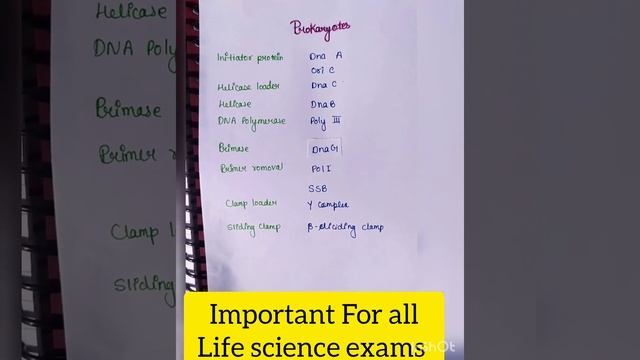 Prokaryotes
Initiator protein Dna A
Ori C
Helicase loader Dna C
Helicase DnaB
DNA Polymerase Poly III
Primase DnaG
Primer romoval Pol I
SSB
Clamp loader γ complex
Sliding clamp β-sliciding clamp
Important For all
Life science exams
Helicase
DNA Poly
Primase
Primer r
Clamp l
Sliding